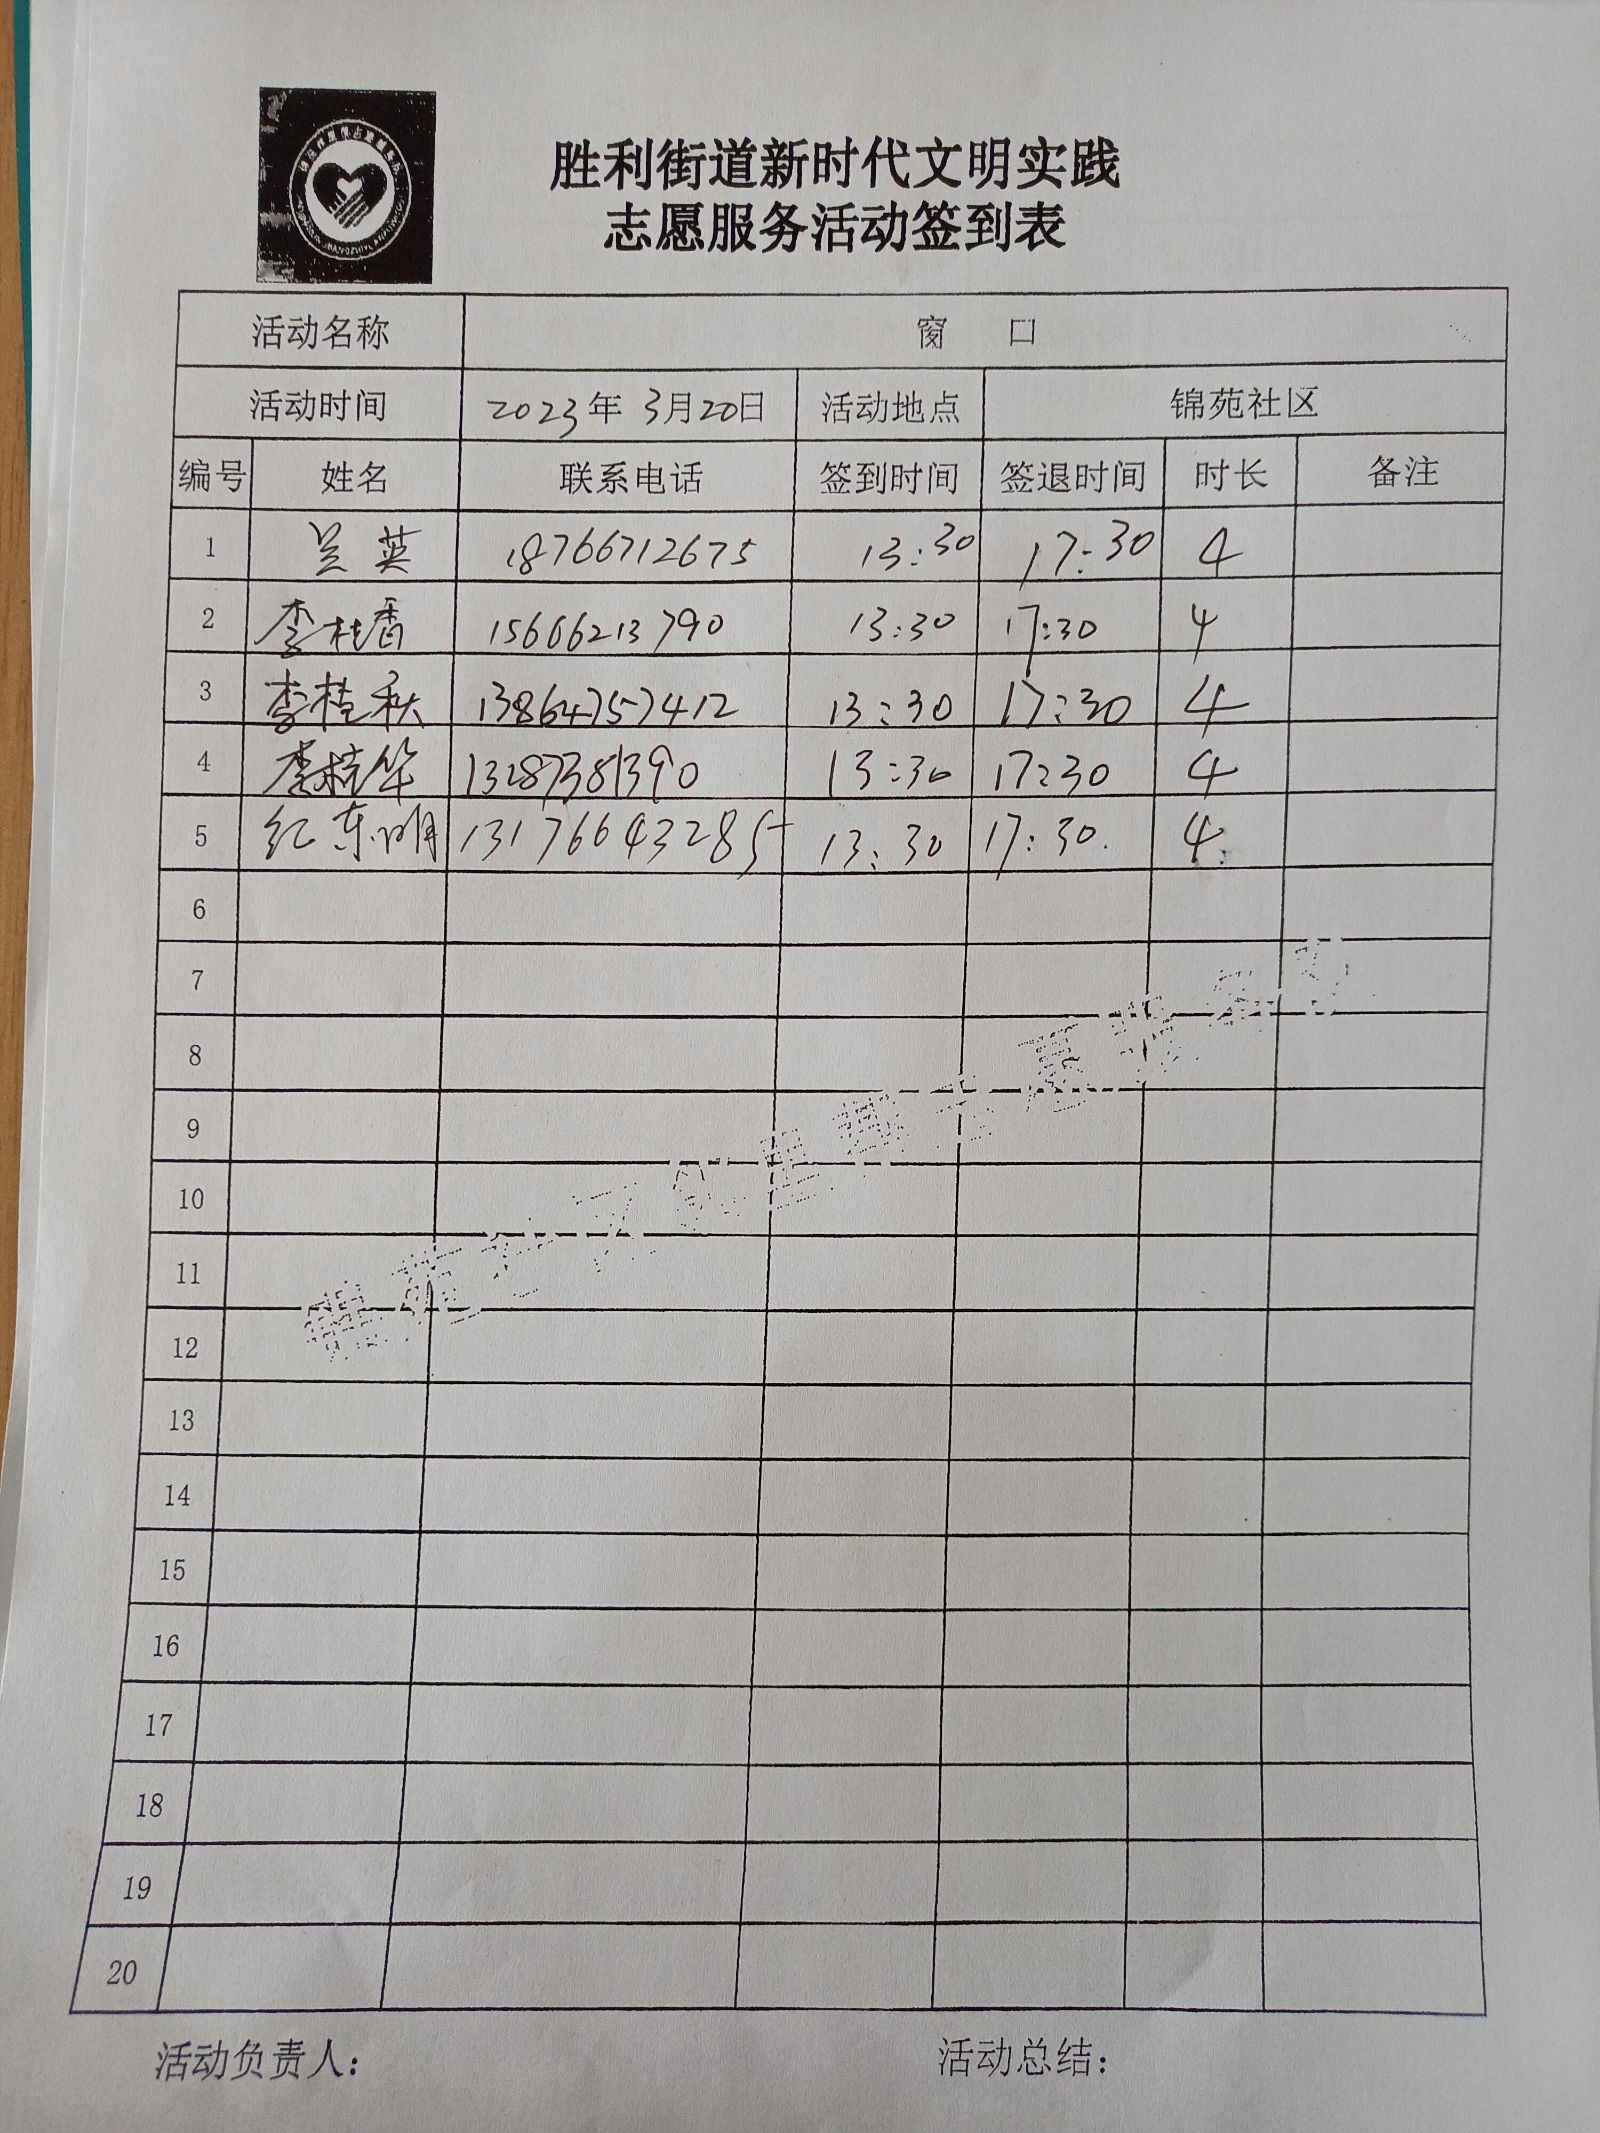 胜利街道新时代文明实践
志愿服务活动签到表
活动名称 窗 口
活动时间 2023年 3月20日 活动地点 锦苑社区
编号 姓名 联系电话 签到时间 签退时间 时长 备注
1 吴英 18766712675 13:30 17:30 4
2 李桂香 15666213790 13:30 17:30 4
3 李桂秋 13864757412 13:30 17:30 4
4 李桂华 13287381390 13:30 17:30 4
5 红东明 13176643285 13:30 17:30. 4
6
7
8
9
10
11
12
13
14
15
16
17
18
19
20
活动负责人： 活动总结：